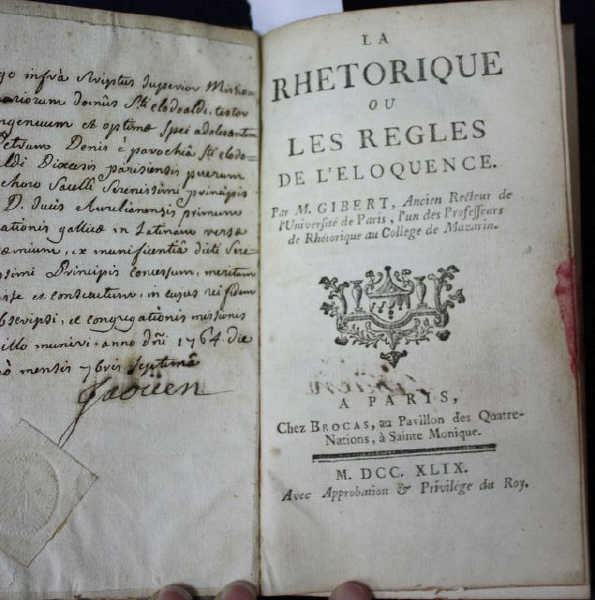 go infrà scriptus superior Missio=
nariorum domûs Sti clodoaldi, testor
ingenuum et optimæ spei adolescentem
Petrum Denis è parochiâ Sti clodo=
aldi Diœcesis parisiensis puerum
choro Sacelli Serenissimi principis
D. Ducis Aurelianensis primum
ationis gallicæ in Latinam versæ
æmium, ex munificentiâ dicti Sere=
ssimi Principis concessum, meritum
esse et consecutum, in cujus rei fidem
bscripsi, et congregationis missionis
sigillo munivi. anno dni 1764 die
mensis 7bris septimâ
Jaouen
LA
RHETORIQUE
OU
LES REGLES
DE L'ELOQUENCE.
Par M. GIBERT, Ancien Recteur de
l'Université de Paris, l'un des Professeurs
de Rhétorique au College de Mazarin.
A PARIS,
Chez BROCAS, au Pavillon des Quatre-
Nations, à Sainte Monique.
M. DCC. XLIX.
Avec Approbation & Privilége du Roy.